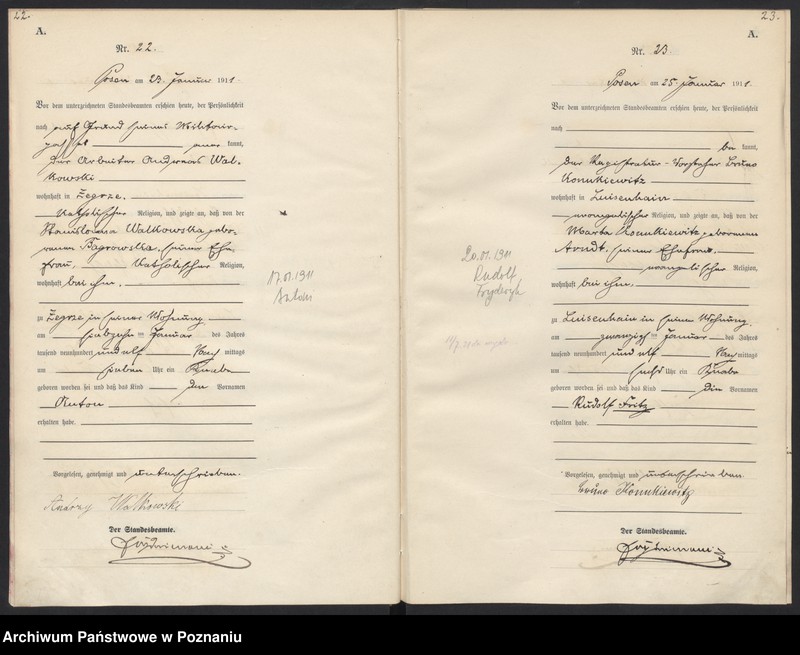 22.
A.
Nr. 22.
Posen am 23. Januar 1911
Vor dem unterzeichneten Standesbeamten erschien heute, der Persönlichkeit
nach auf Grund seines Militair-
passes aner kannt,
der Arbeiter Andreas Wal-
kowski
wohnhaft in Żegrze,
katholischer Religion, und zeigte an, daß von der
Stanislawa Walkowska gebo-
renen Bagrowska, seiner Ehe-
frau, katholischer Religion,
wohnhaft bei ihm,
zu Żegrze in seiner Wohnung
am siebzehn ten Januar des Jahres
tausend neunhundert und elf Vor mittags
um sieben Uhr ein Knabe
geboren worden sei und daß das Kind den Vornamen
Anton
erhalten habe.
Vorgelesen, genehmigt und unterschrieben.
Andrzy Walkowski
Der Standesbeamte.
17.01.1911
Antoni
23.
A.
Nr. 23
Posen am 25. Januar 1911
Vor dem unterzeichneten Standesbeamten erschien heute, der Persönlichkeit
nach
be kannt,
der Magistratur-Vorsteher Bruno
Konukiewitz
wohnhaft in Luisenhain
evangelischer Religion, und zeigte an, daß von der
Marta Konukiewitz geborenen
Arndt, seiner Ehefrau,
evangelischer Religion,
wohnhaft bei ihm,
zu Luisenhain in seiner Wohnung
am zwanzigs ten Januar des Jahres
tausend neunhundert und elf Vor mittags
um sechs Uhr ein Knabe
geboren worden sei und daß das Kind die Vornamen
Rudolf Fritz
erhalten habe.
Vorgelesen, genehmigt und unterschrieben.
Bruno Konukiewitz
Der Standesbeamte.
20.01.1911
Rudolf
Fryderyk
Archiwum Państwowe w Poznaniu